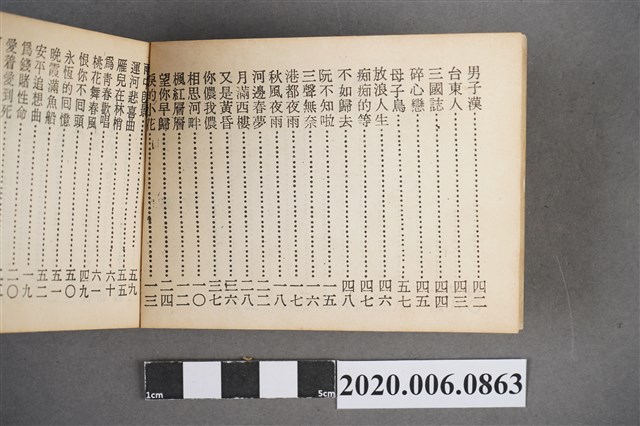 男子漢 四二
台東人 四三
三國誌 四四
碎心戀 四五
母子鳥 五七
放浪人生 四六
痴痴的等 四七
不如歸去 四八
阮不知啦 一五
三聲無奈 一六
港都夜雨 一七
秋風夜雨 一八
河邊春夢 二二
月滿西樓 二八
又是黃昏 三六
你儂我儂 三七
相思河畔 一〇
楓紅層層 一一
望你早歸 二四
的小花 一三
運河悲喜曲 五九
雁兒在林梢 五五
為青春歡唱 六十
桃花舞春風 六一
恨你不回頭 四九
永恆的回憶 五〇
晚霞滿魚船 五一
安平追想曲 五二
為錢賭性命 一九
愛着愛到死 二〇
1cm
5cm
2020.006.0863